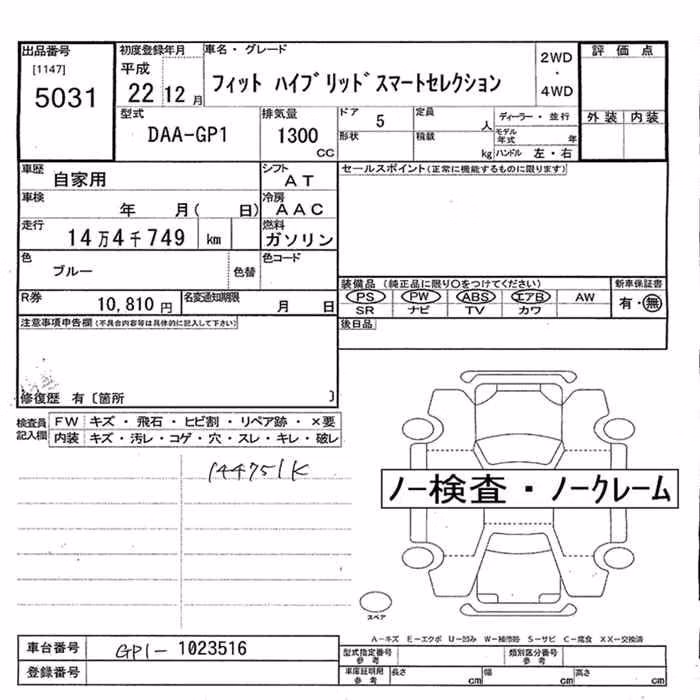 出品番号 初度登録年月 車名・グレード 2WD ・ 4WD 評価点
[1147] 平成
5031 22 12月 フィット ハイブリッド スマートセレクション
型式 排気量 ドア 定員 ディーラー・並行 外装 内装
DAA-GP1 1300 CC 5 人 モデル年式 年
形状 積載 kg ハンドル 左・右
車歴 シフト セールスポイント(正常に機能するものに限ります)
自家用 AT
車検 冷房
年 月( 日) AAC
走行 燃料
14万4千749 km ガソリン
色 色コード
ブルー 色替
装備品(純正品に限り○をつけてください) 新車保証書
R券 名変通知期限 PS PW ABS エアB AW 有・無
10,810円 月 日 SR ナビ TV カワ
注意事項申告欄(不具合内容等は具体的に記入して下さい) 後日品
修復歴 有〔箇所 〕
検査員記入欄 FW キズ・飛石・ヒビ割・リペア跡・×要
内装 キズ・汚レ・コゲ・穴・スレ・キレ・破レ
144751K
ノー検査・ノークレーム
スペア
A-キズ E-エクボ U-凹み W-補修跡 S-サビ C-腐食 XX-交換済
車台番号 GP1-1023516 型式指定番号 参考 類別区分番号 参考
登録番号 車庫証明用 参考 長さ cm 幅 cm 高さ cm